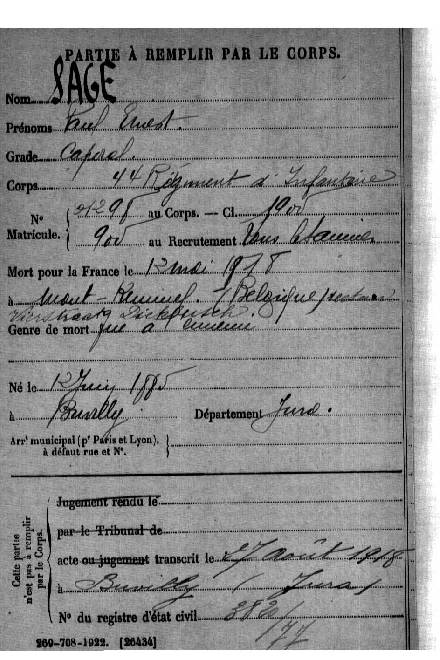 PARTIE À REMPLIR PAR LE CORPS.
Nom SAGE
Prénoms Paul Ernest.
Grade Caporal.
Corps 44 Régiment d'Infanterie
N° Matricule. 01298 au Corps. — Cl. 1905
900 au Recrutement Lons
Mort pour la France le 12 mai 1918
à Mont-Kemmel. (Belgique) secteur
Vierstraat Dickebusch.
Genre de mort tué à ennemi
Né le 12 Juin 1885
à Buvilly Département Jura.
Arrt municipal (pr Paris et Lyon),
à défaut rue et N°.
Cette partie n'est pas à remplir par le Corps.
Jugement rendu le
par le Tribunal de
acte ou jugement transcrit le 27 août 1918
à Buvilly (Jura)
N° du registre d'état civil 382/
/77
269-708-1922. [26434]